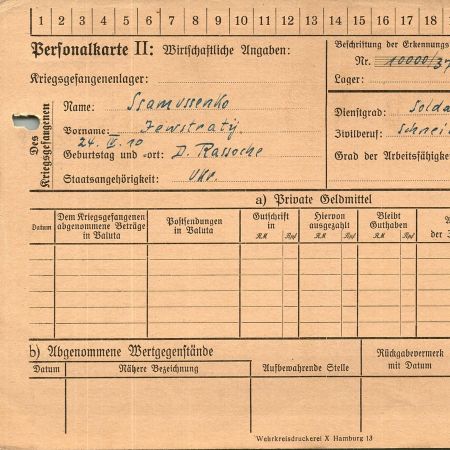 1 2 3 4 5 6 7 8 9 10 11 12 13 14 15 16 17 18
Personalkarte II: Wirtschaftliche Angaben:
Beschriftung der Erkennungs
Nr. 10000/37
Kriegsgefangenenlager:
Lager:
Des Kriegsgefangenen
Name: Ssamussenko
Dienstgrad: Solda
Vorname: Jewstratij
Zivilberuf: Schnei
24. IV. 10
Geburtstag und -ort: D. Rassoche
Grad der Arbeitsfähigke
Staatsangehörigkeit: Ukr.
a) Private Geldmittel
Datum
Dem Kriegsgefangenen abgenommene Beträge in Valuta
Postsendungen in Valuta
Gutschrift in
RM Rpf
Hiervon ausgezahlt
RM Rpf
Bleibt Guthaben
RM Rpf
der
b) Abgenommene Wertgegenstände
Datum
Nähere Bezeichnung
Aufbewahrende Stelle
Rückgabevermerk mit Datum
Wehrkreisdruckerei X Hamburg 13